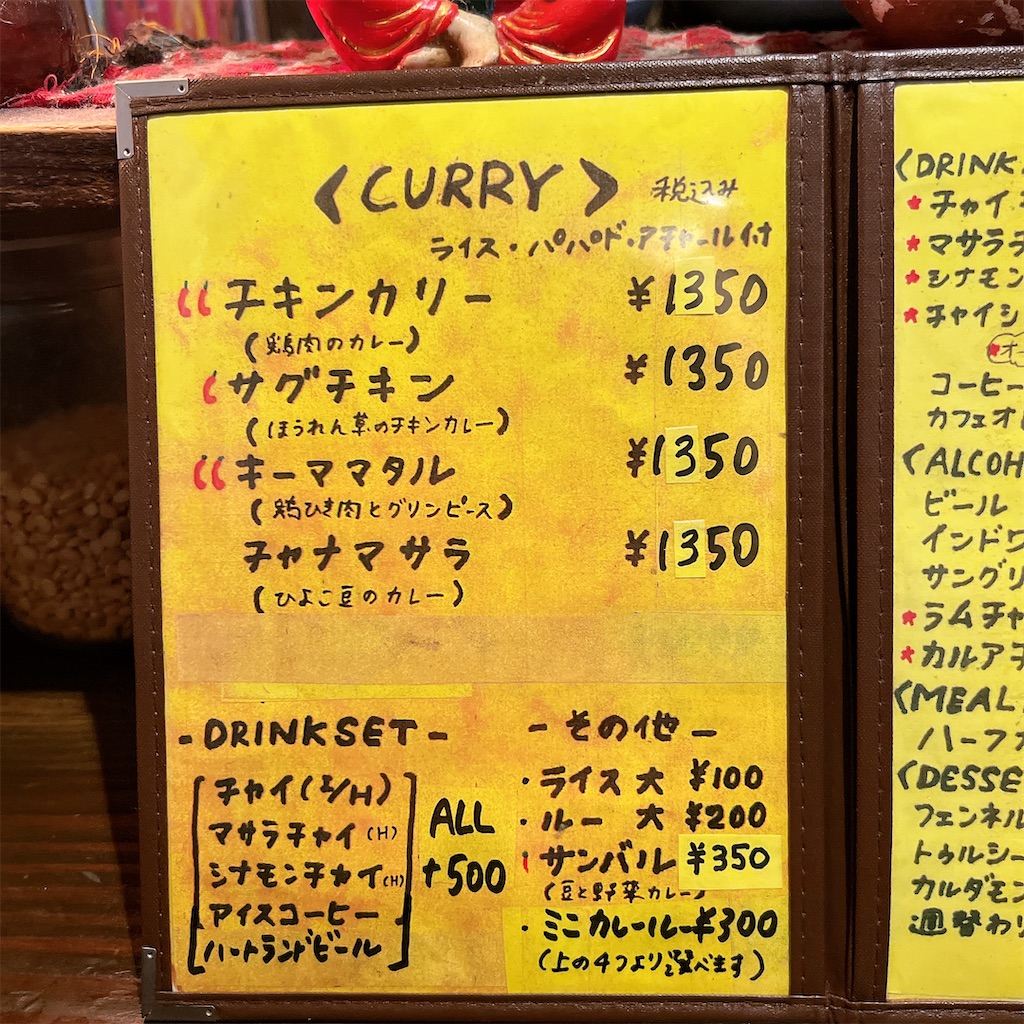 <CURRY> 税込み
ライス・パパド・アチャール付
チキンカリー ¥1350
(鶏肉のカレー)
サグチキン ¥1350
(ほうれん草のチキンカレー)
キーママタル ¥1350
(鶏ひき肉とグリンピース)
チャナマサラ ¥1350
(ひよこ豆のカレー)
-DRINKSET-
チャイ(I/H)
マサラチャイ(H)
シナモンチャイ(H)
アイスコーヒー
ハートランドビール
ALL
+500
-その他-
・ライス 大 ¥100
・ルー 大 ¥200
サンバル ¥350
(豆と野菜カレー)
・ミニカレールー¥300
(上の4つより選べます)
<DRINK
★チャイ
★マサラチ
★シナモン
★チャイシ
★オ
コーヒー
カフェオ
<ALCOH
ビール
インドワ
サングリ
★ラムチャ
★カルアチ
<MEAL
ハーフカ
<DESSE
フェンネル
トゥルシー
カルダモン
週替わり